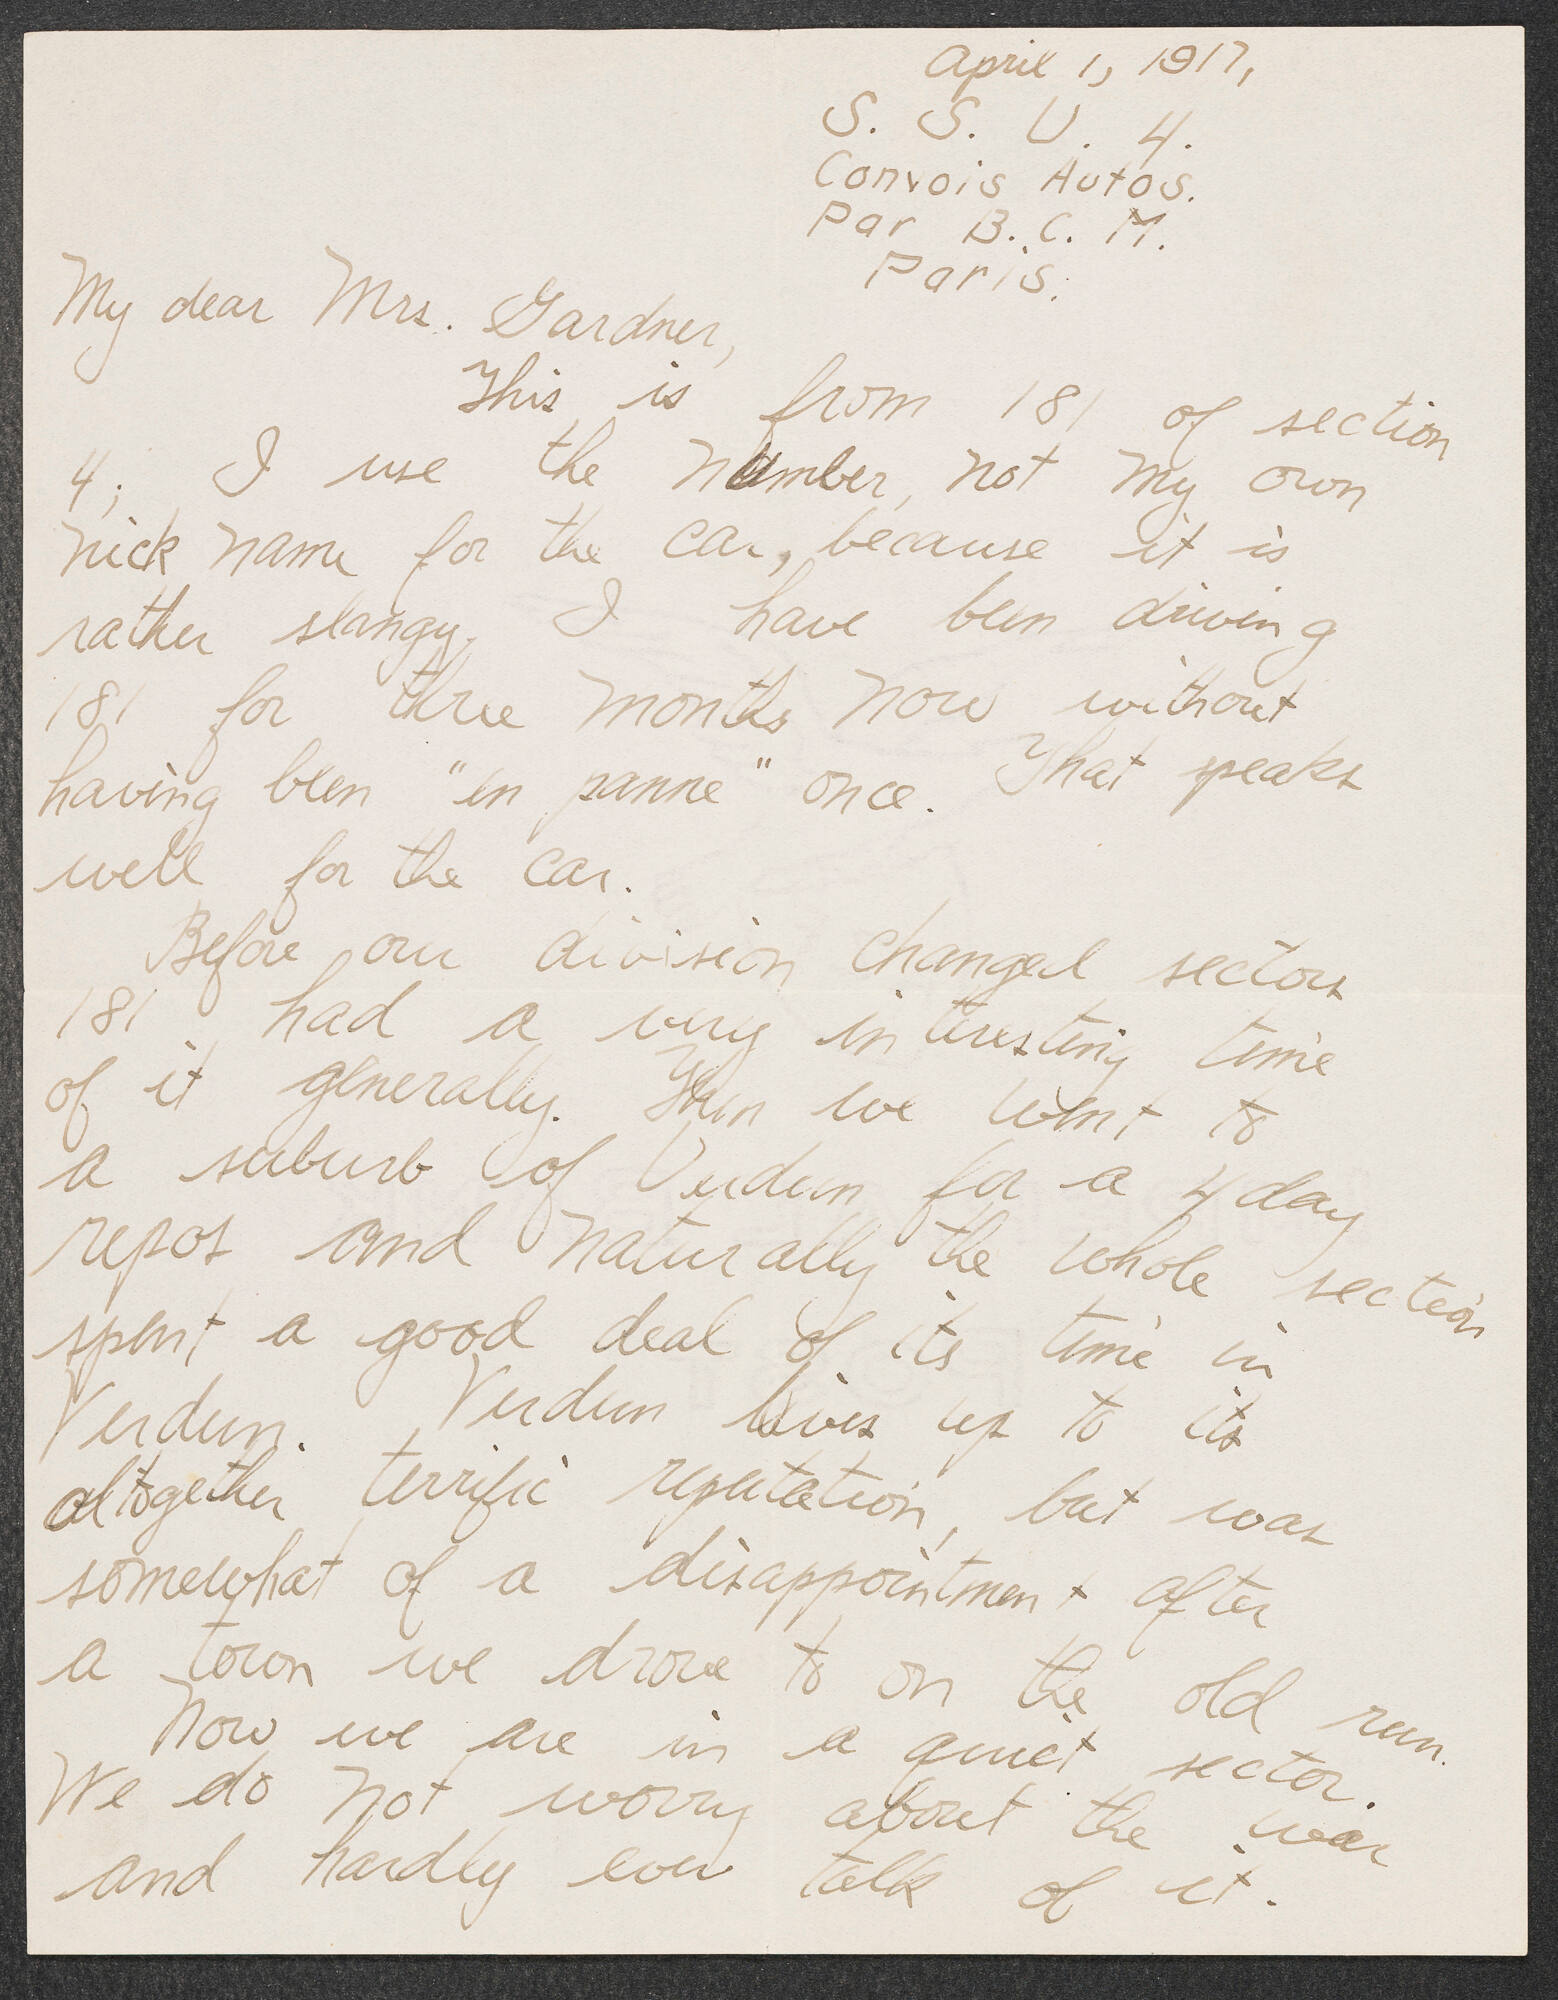 April 1, 1917,
S. S. U. 4.
Convois Autos.
Par B. C. M.
Paris.
My dear Mrs. Gardner,
This is from 181 of section
4; I use the number, not my own
nick name for the car, because it is
rather slangy. I have been driving
181 for three months now without
having been "en panne" once. That speaks
well for the car.
Before our division changed sectors
181 had a very interesting time
of it generally. Then we went to
a suburb of Verdun for a 4 day
repos and naturally the whole section
spent a good deal of its time in
Verdun. Verdun lives up to its
altogether terrific reputation, but was
somewhat of a disappointment after
a town we drove to on the old run.
Now we are in a quiet sector.
We do not worry about the war
and hardly ever talk of it.